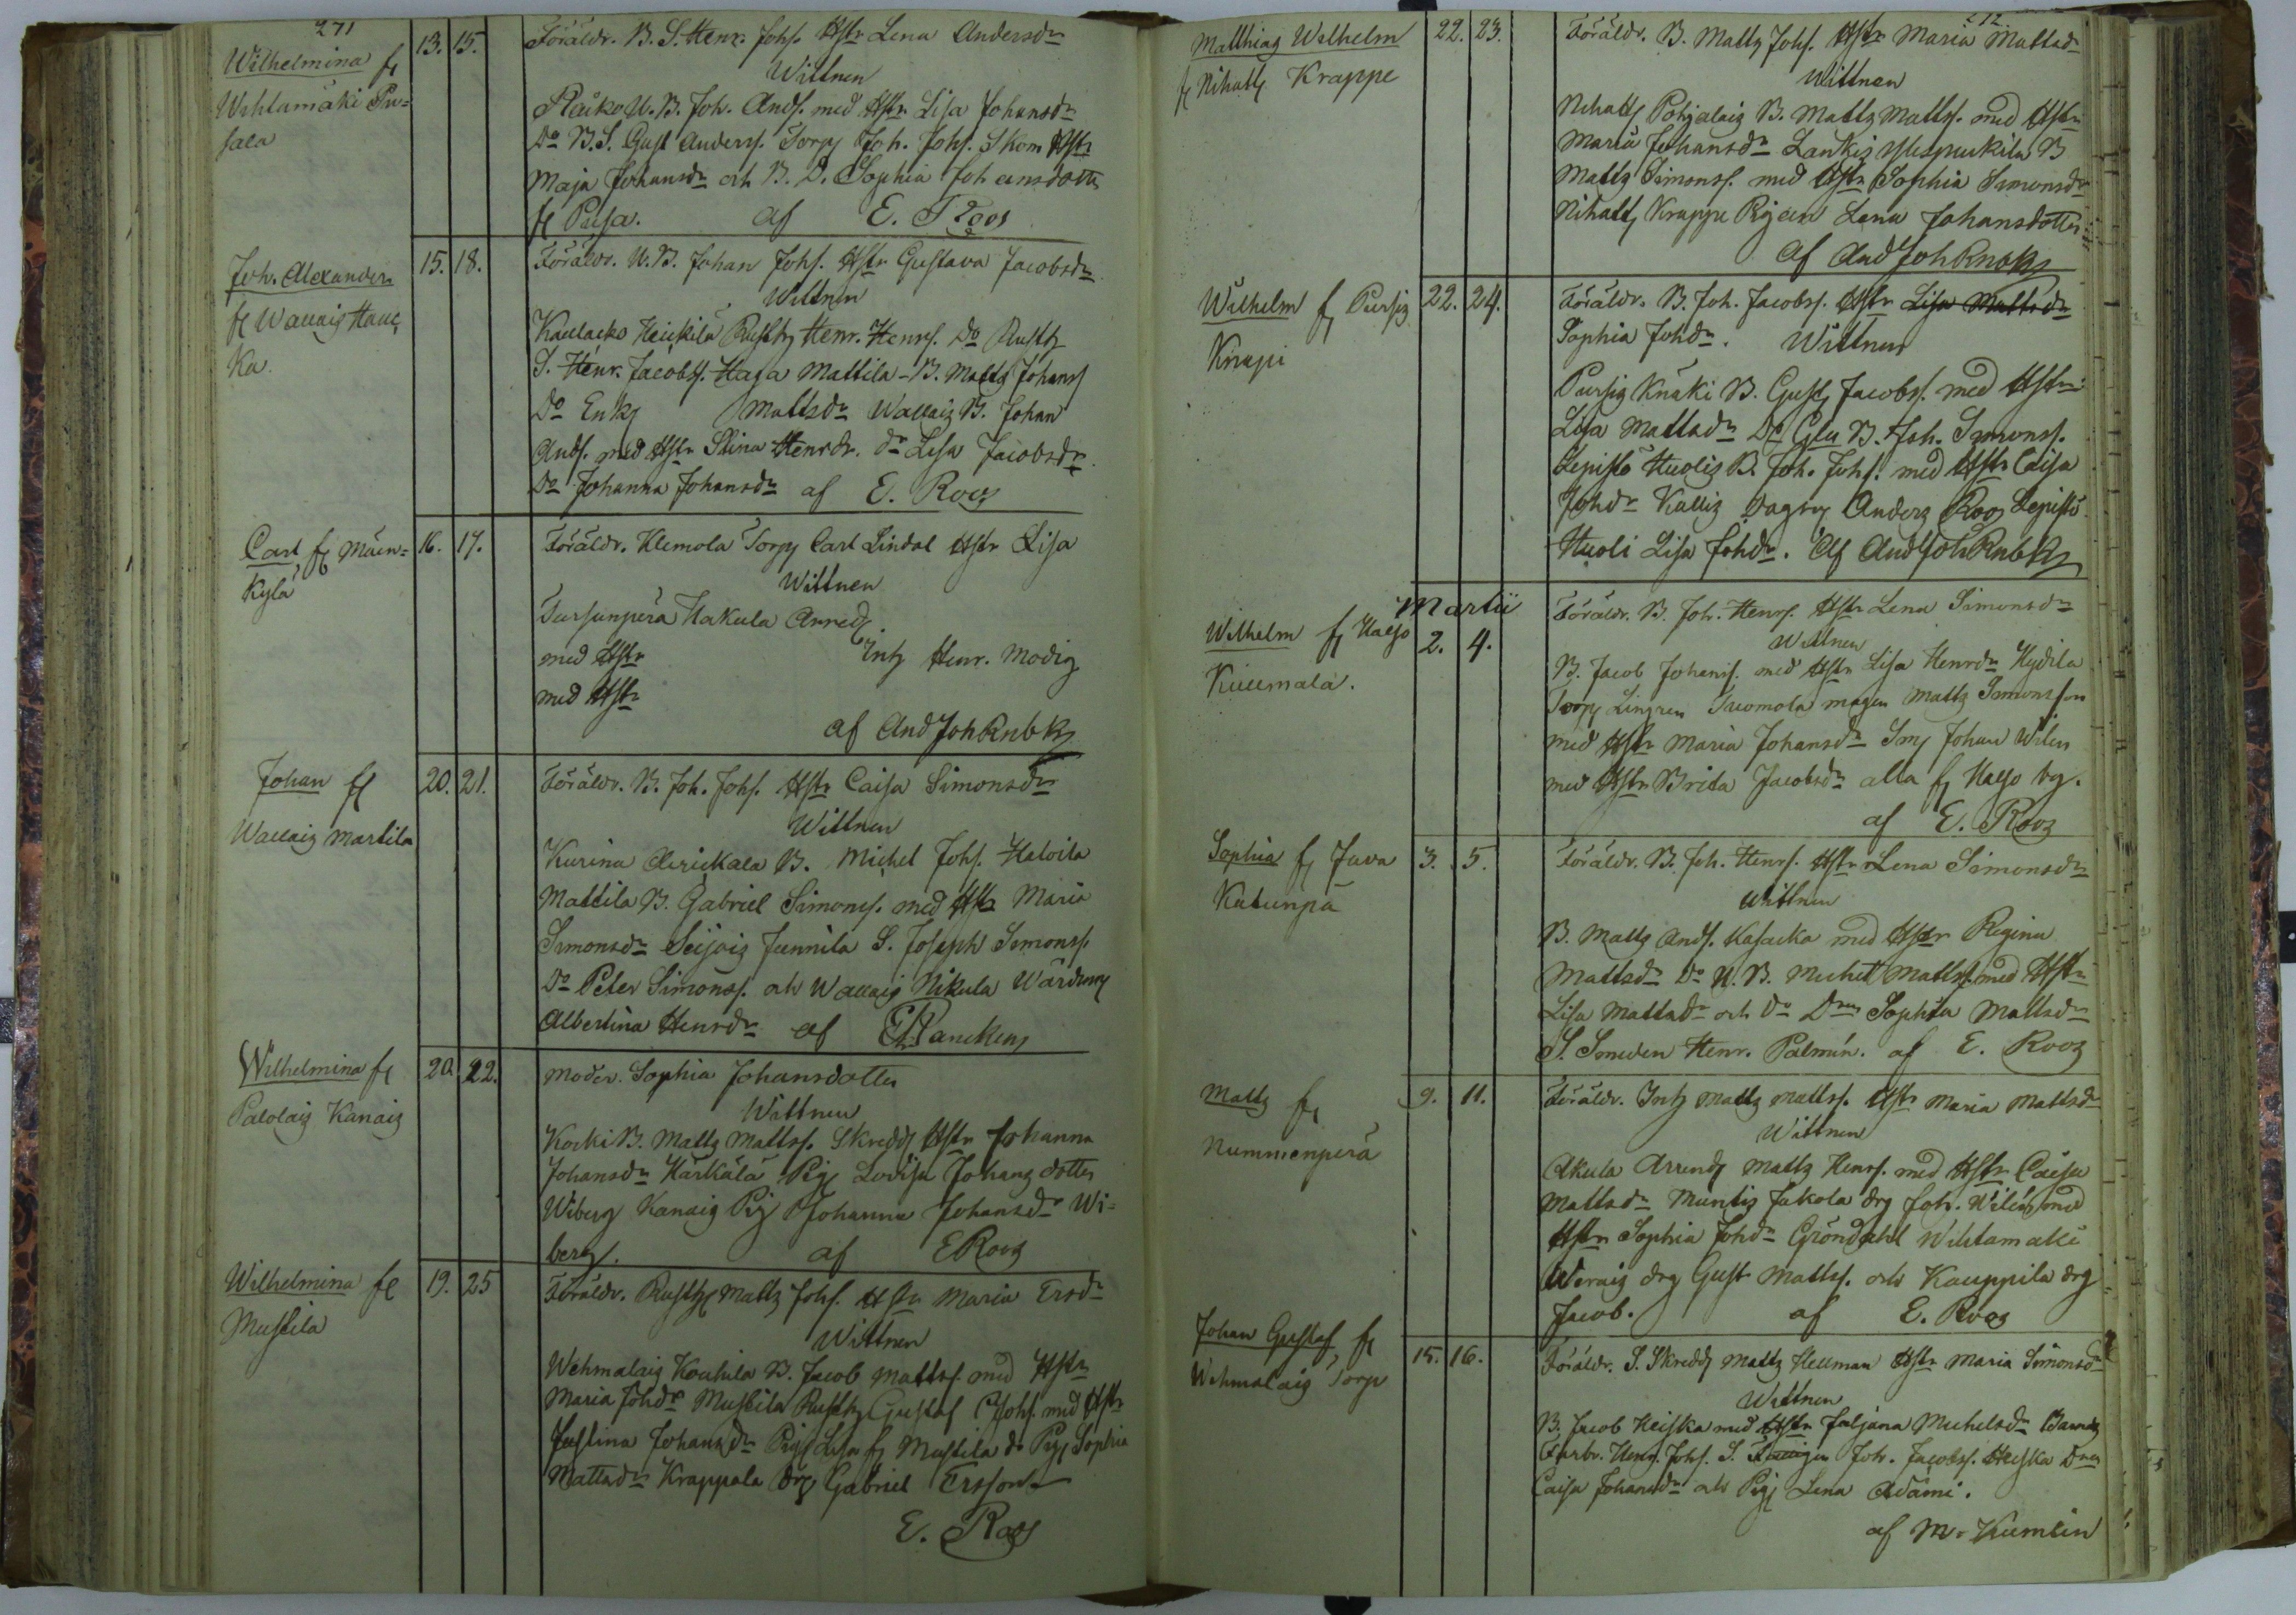 271
Wilhelmina fr
Wihtamäki Pu=
sala
13. 15.
Föräldr. B. S. Henr. Johs. Hstr Lena Andersdr
Wittnen
U. B. Joh. Ands. med Hstr Lisa Johansdr
Do B. S. Gust Anderss. Torp Joh. Johs. Skom Hstr
Maja Johansdr och B. D. Sophia Johansdotter
fr Pusa. af E. Roos
Joh. Alexander
fr Wallais Hauc
ka.
15. 18.
Föräldr. U. B. Johan Johs. Hstr Gustava Jacobsdr
Wittnen
Kaulacko Heickilä Rusth Henr. Henrs. Do Rusth
S. Henr. Jacobss. Haga Mattila B. Matts Johans
Do Enk Mattsdr Wallais B. Johan
Ands. med Hstr Stina Henrdr. Do Lisa Jacobsdr
Do Johanna Johansdr af E. Roos
Carl fr Mäen=
kylä
16. 17.
Föräldr. Klemola Torp Carl Lindal Hstr Lisa
Wittnen
Tursunperä Hakula Arred
med Hstr Inh Henr. Modig
med Hstr
af And Joh Rnbk
Johan fr
Wallais Martila
20. 21.
Föräldr. B. Joh. Johs. Hstr Caisa Simonsdr
Wittnen
Kurina B. Michel Johs. Haloila
Mattila B. Gabriel Simons. med Hstr Maria
Simonsdr Seijais Junnila S. Joseph Simonss.
Do Peter Simonss. och Wallais Nikula
Albertina Henrdr af
Wilhelmina fr
Palolais Kanais
20. 22.
Moder. Sophia Johansdotter
Wittnen
Kocki B. Matts Mattss. Skredd Hstr Johanna
Johansdr Härkälä Pig Lovisa Johans dotter
Wiberg Kanais Pig Johanna Johansdr Wi=
berg. af E Roos
Wilhelmina fr
Mustila
19. 25
Föräldr. Rusth Matts Johs. Hstr Maria Ersdr
Wittnen
Wehmalais Kouhila B. Jacob Mattss. med Hstr
Maria Johdr Mustila Rusth Gustaf Johs. med Hstr
Justina Johansdr Pig Lisa fr Mustila do Pig Sophia
Mattsdr Krappala drg Gabriel Ersson
E. Roos
272
Matthias Wilhelm
fr Nihatt Krappe
22. 23.
Föräldr. B. Matts Johs. Hstr Maria Mattsdr
Wittnen
Nihatt Pohjalais B. Matts Mattss. med Hstr
Maria Johansdr Lankis B
Matts Simonss. med Hstr Sophia Simonsdr
Nihatt Krappe Pigan Lena Johansdotter
af And Joh Rnbk
Wilhelm fr Pursis
Knapi
22. 24.
Föräldr. B. Joh. Jacobss. Hstr Lisa Mattsdr
Sophia Johdr. Wittnen
Pursis Knaki B. Gust Jacobss. med Hstr
Lisa Mattsdr Do B. Joh. Simonss.
Lepistö Huolis B. Joh. Johs. med Hstr Caisa
Johdr Kallis Anders Roos Lepistö
Huoli Lisa Johdr. af And Joh Rnbk
Martii
Wilhelm fr Haijo
Kuumala.
2. 4.
Föräldr. B. Joh. Henrs. Hstr Lena Simonsdr
Wittnen
B. Jacob Johans. med Hstr Lisa Henrdr
Torp Lingren Tuomola mågen Matts Simonsson
med Hstr Maria Johansdr Johan Wilen
med Hstr Brita Jacobsdr alla fr Haijo by.
af E. Roos
Sophia fr Juva
Katunpä
3. 5.
Föräldr. B. Joh. Henrs. Hstr Lena Simonsdr
Wittnen
B. Matts Ands. Kasacka med Hstr Regina
Mattsdr Do U. B. Michel Mattss. med Hstr
Lisa Mattsdr och Do Drn Sophia Mattsdr
S. Smeden Henr. Palmin. af E. Roos
Matts fr
Nummenperä
9. 11.
Föräldr. Inh Matts Mattss. Hstr Maria Mattsdr
Wittnen
Akula Arrend Matts Henrs. med Hstr Caisa
Mattsdr Muntis Jakola drg Joh. Wilén med
Hstr Sophia Johdr Gröndahl Wihtamäki
drg Gust Mattss. och Kauppila drg
Jacob. af E. Roos
Johan Gustaf fr
Wehmalais Torp
15. 16.
Föräldr. S. Skredd Matts Hellman Hstr Maria Simonsdr
Wittnen
B. Jacob Heiska med Hstr Juljana Michelsdr
Farbr. Henr. Johs. S. Joh. Jacobss. Heiska Drn
Caisa Johansdr och Pig Lena Adami.
af M. Kumlin